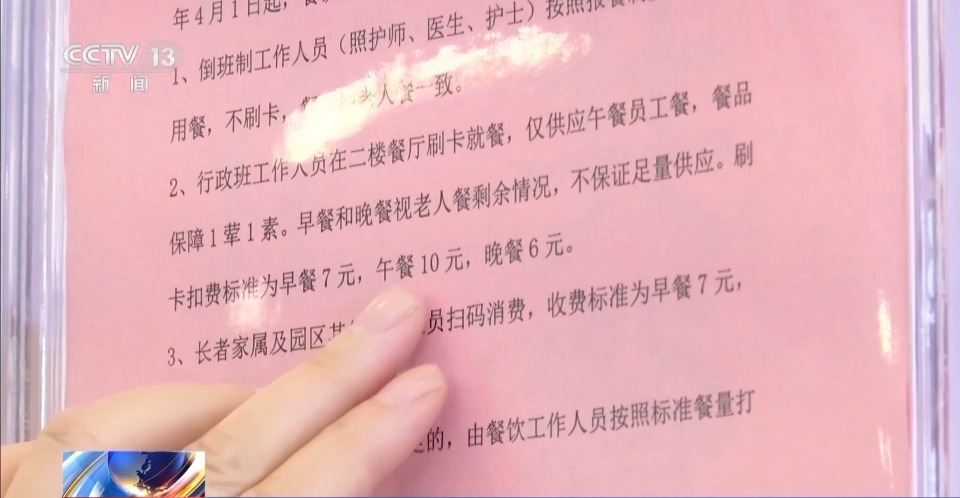 年4月1日起，餐
CCTV 13
新闻
1、倒班制工作人员（照护师、医生、护士）按照报餐
用餐，不刷卡，餐 老人餐一致。
2、行政班工作人员在二楼餐厅刷卡就餐，仅供应午餐员工餐，餐品
保障1荤1素。早餐和晚餐视老人餐剩余情况，不保证足量供应。刷
卡扣费标准为早餐7元，午餐10元，晚餐6元。
3、长者家属及园区其 员扫码消费，收费标准为早餐7元，
的，由餐饮工作人员按照标准餐量打